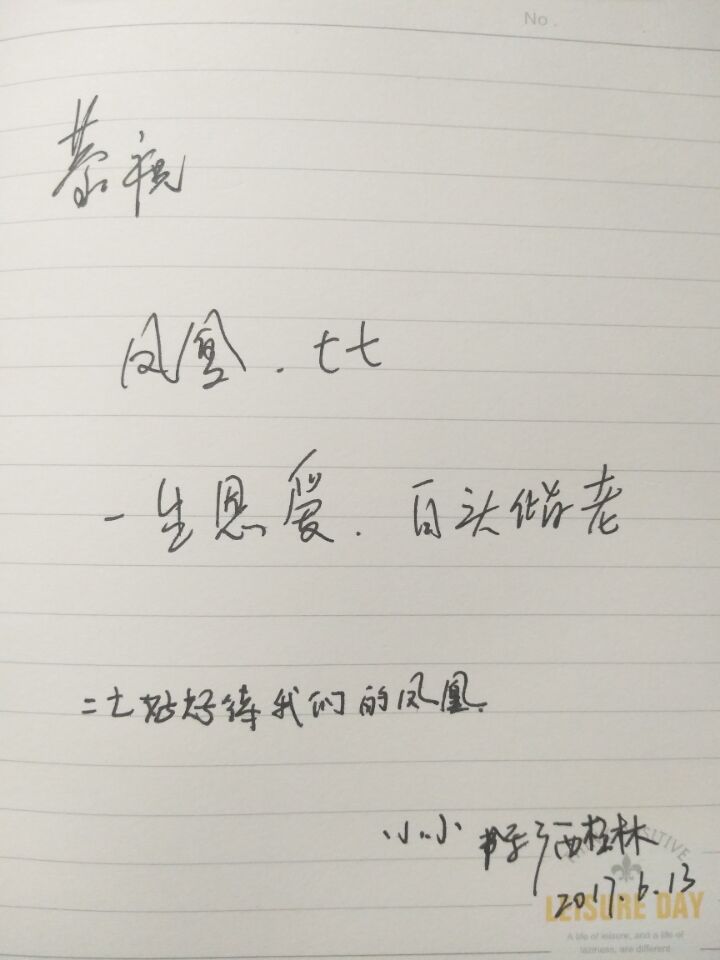 No.
恭祝
凤凰.七七
一生恩爱.百头偕老
二七好好待我们的凤凰.
小小 书于广西桂林
2017.6.13
SITIVE
LEISURE DAY
A life of leisure, and a life of
laziness, are different